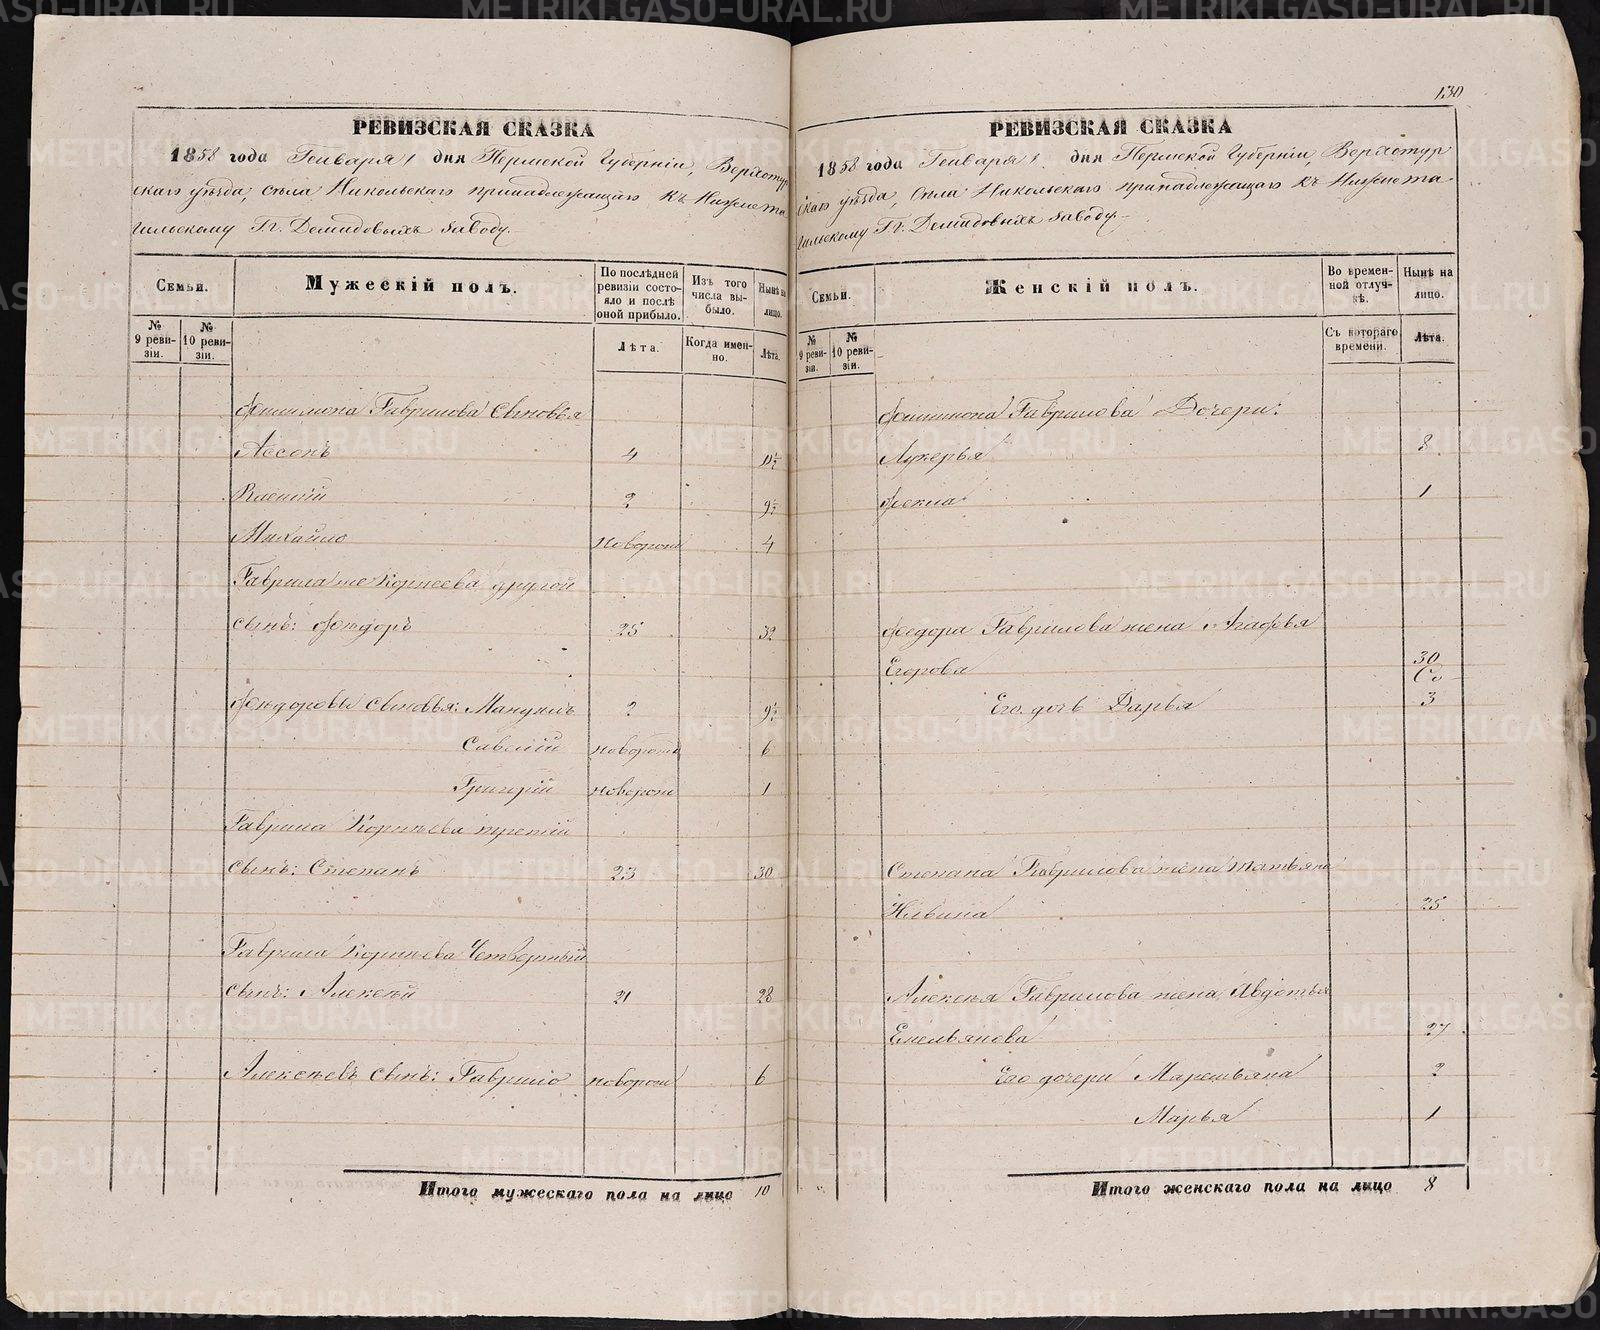 130
РЕВИЗСКАЯ СКАЗКА
1858 года Генваря 1 дня Пермской Губернiи, Верхотур
скаго уѣзда, села Никольскаго принадлежащаго къ Нижнета
гильскому Гг. Демидовыхъ заводу.
Семьи.
Мужескiй полъ.
По послѣдней ревизiи состояло и послѣ оной прибыло.
Изъ того числа выбыло.
Нынѣ на лицо.
№ 9 ревизiи.
№ 10 ревизiи.
Лѣта.
Когда именно.
Лѣта.
Гаврилова Сыновья
4 11½
2 9½
Михайло новорож 4
Гаврила же Корнеева другой
сынъ: Фёдоръ 25 32
Фёдоровы сыновья: Мануилъ 2 9½
Савелiй новорож 6
Григорiй новорож 1
Гаврила Корнѣева третiй
сынъ: Степанъ 23 30
Гаврила Корнѣева Четвертый
сынъ: Алексѣй 21 28
Алексѣевъ сынъ: Гаврило новорож 6
Итого мужескаго пола на лицо 10
РЕВИЗСКАЯ СКАЗКА
1858 года Генваря 1 дня Пермской Губернiи, Верхотур
скаго уѣзда, Села Никольскаго принадлежащаго къ Нижнета
гильскому Гг. Демидовыхъ заводу.
Семьи.
Женскiй полъ.
Во временной отлучкѣ.
Нынѣ на лицо.
№ 9 ревизiи.
№ 10 ревизiи.
Съ котораго времени.
Лѣта.
Гаврилова Дочери:
Лукерья 8
Фекла 1
Федора Гаврилова жена Агафья
Егорова 30
Его дочь Дарья 3
Степана Гаврилова жена Татьяна
25
Алексея Гаврилова жена Авдотья
Емельянова 27
Его дочери Маремьяна 2
Марья 1
Итого женскаго пола на лицо 8
METRIKI.GASO-URAL.RU